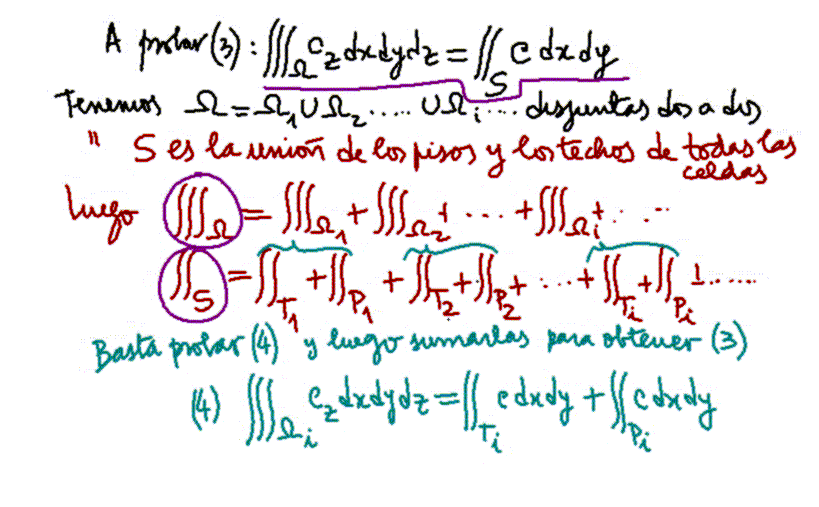 A probar (3): ∭_Ω C_z dxdydz = ∬_S C dxdy
Tenemos Ω = Ω_1 ∪ Ω_2 ..... ∪ Ω_i .... disjuntas dos a dos
" S es la unión de los pisos y los techos de todas las
celdas
luego ∭_Ω = ∭_Ω_1 + ∭_Ω_2 + ... + ∭_Ω_i + .. ..
∬_S = ∬_T_1 + ∬_P_1 + ∬_T_2 + ∬_P_2 + ... + ∬_T_i + ∬_P_i + .....
Basta probar (4) y luego sumarlas para obtener (3)
(4) ∭_Ω_i C_z dxdydz = ∬_T_i c dxdy + ∬_P_i c dxdy